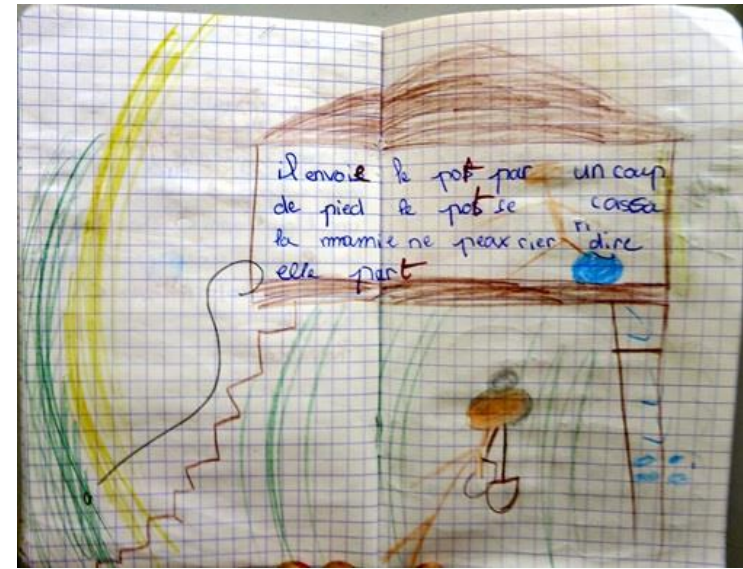 il envoie le pot par un coup
de pied le pot se cassa
la mamie ne peax rier ri dire
elle part